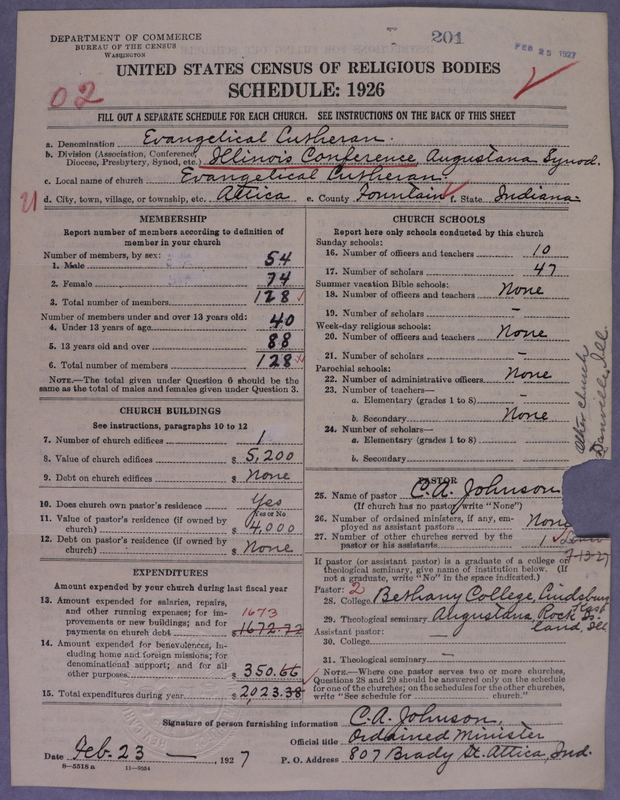 DEPARTMENT OF COMMERCE
BUREAU OF THE CENSUS
WASHINGTON
201
FEB 25 1927
UNITED STATES CENSUS OF RELIGIOUS BODIES
SCHEDULE: 1926
02
FILL OUT A SEPARATE SCHEDULE FOR EACH CHURCH. SEE INSTRUCTIONS ON THE BACK OF THIS SHEET
a. Denomination Evangelical Lutheran.
b. Division (Association, Conference, Diocese, Presbytery, Synod, etc.) Illinois Conference Augustana Synod.
c. Local name of church Evangelical Lutheran.
d. City, town, village, or township, etc. Attica e. County Fountain f. State Indiana.
MEMBERSHIP
Report number of members according to definition of
member in your church
Number of members, by sex:
1. Male 54
2. Female 74
3. Total number of members 128
Number of members under and over 13 years old:
4. Under 13 years of age 40
5. 13 years old and over 88
6. Total number of members 128
NOTE.—The total given under Question 6 should be the
same as the total of males and females given under Question 3.
CHURCH BUILDINGS
See instructions, paragraphs 10 to 12
7. Number of church edifices 1
8. Value of church edifices $ 5,200
9. Debt on church edifices $ None
10. Does church own pastor's residence Yes
Yes or No
11. Value of pastor's residence (if owned by
church) $ 4,000
12. Debt on pastor's residence (if owned by
church) $ None
EXPENDITURES
Amount expended by your church during last fiscal year
13. Amount expended for salaries, repairs,
and other running expenses; for im-
provements or new buildings; and for
payments on church debt 1673
$ 1672.72
14. Amount expended for benevolences, in-
cluding home and foreign missions; for
denominational support; and for all
other purposes $ 350.66
15. Total expenditures during year $ 2,023.38
CHURCH SCHOOLS
Report here only schools conducted by this church
Sunday schools:
16. Number of officers and teachers 10
17. Number of scholars 47
Summer vacation Bible schools:
18. Number of officers and teachers None
19. Number of scholars –
Week-day religious schools:
20. Number of officers and teachers None
21. Number of scholars –
Parochial schools:
22. Number of administrative officers None
23. Number of teachers—
a. Elementary (grades 1 to 8)
b. Secondary None
24. Number of scholars—
a. Elementary (grades 1 to 8)
b. Secondary
other church
Danville Ill.
PASTOR
25. Name of pastor C.A. Johnson
(If church has no pastor write "None")
26. Number of ordained ministers, if any, em-
ployed as assistant pastors None
27. Number of other churches served by the
pastor or his assistants 1
7-13-27
If pastor (or assistant pastor) is a graduate of a college or
theological seminary, give name of institution below. (If
not a graduate, write "No" in the space indicated.)
Pastor: 2
28. College Bethany College, Lindsburg
29. Theological seminary Augustana, Rock Is-
land, Ill
Assistant pastor:
30. College —
31. Theological seminary —
NOTE.—Where one pastor serves two or more churches,
Questions 28 and 29 should be answered only on the schedule
for one of the churches; on the schedules for the other churches,
write "See schedule for church."
Signature of person furnishing information C.A. Johnson,
Official title Ordained Minister
Date Feb. 23 —, 1927 P. O. Address 807 Brady St. Attica, Ind.
8—5518 a 11—9034